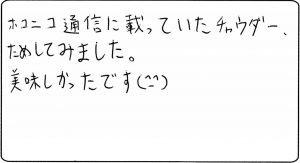 ホコニコ通信に載っていたチャウダー、
ためしてみました。
美味しかったです(^^)